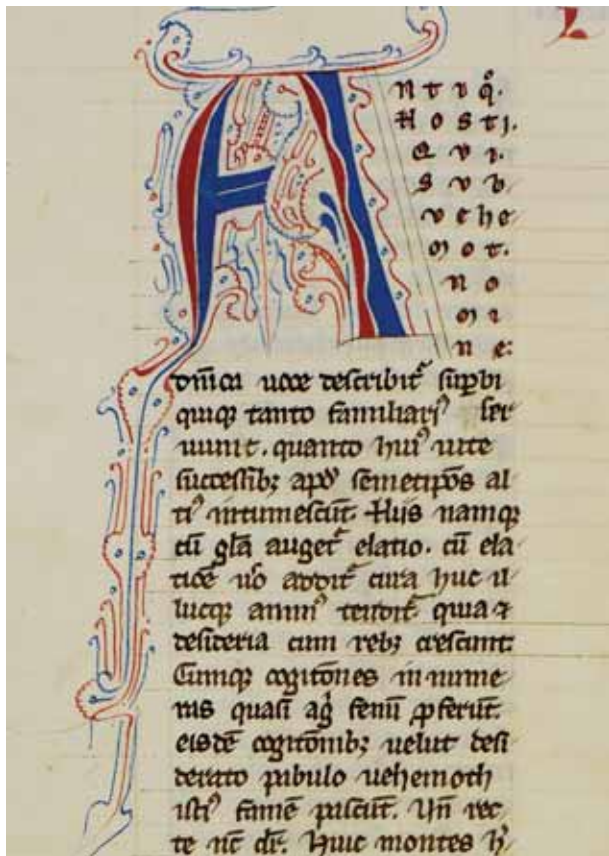 A
ntiq̊.
Hosti.
Qui.
Sub
vehe
mot.
no
mi
ne:
dn̄ica uoce describit᷑ suꝑbi
quiqꝫ tanto familiariꝰ ser
uiunt. quanto huiꝰ uite
successibꝫ apđ semetip̄os al
tiꝰ intumescūt. Hiis namqꝫ
cū gl̄a auget᷑ elatio. cū ela
tiōe u̓o addit᷑ cura huc il
lucqꝫ animꝰ tendit᷑ quia ⁊
desideria cum rebꝫ crescunt:
Cumqꝫ cogitōnes innume
ras quasi ag̓ fenū ꝓferūt.
eisdē cogitōnibꝫ uelut desi
derato pabulo uehemoth
istiꝰ famē pascūt. Un̄ rec
te nc̄ dr̄. Huic montes h̓